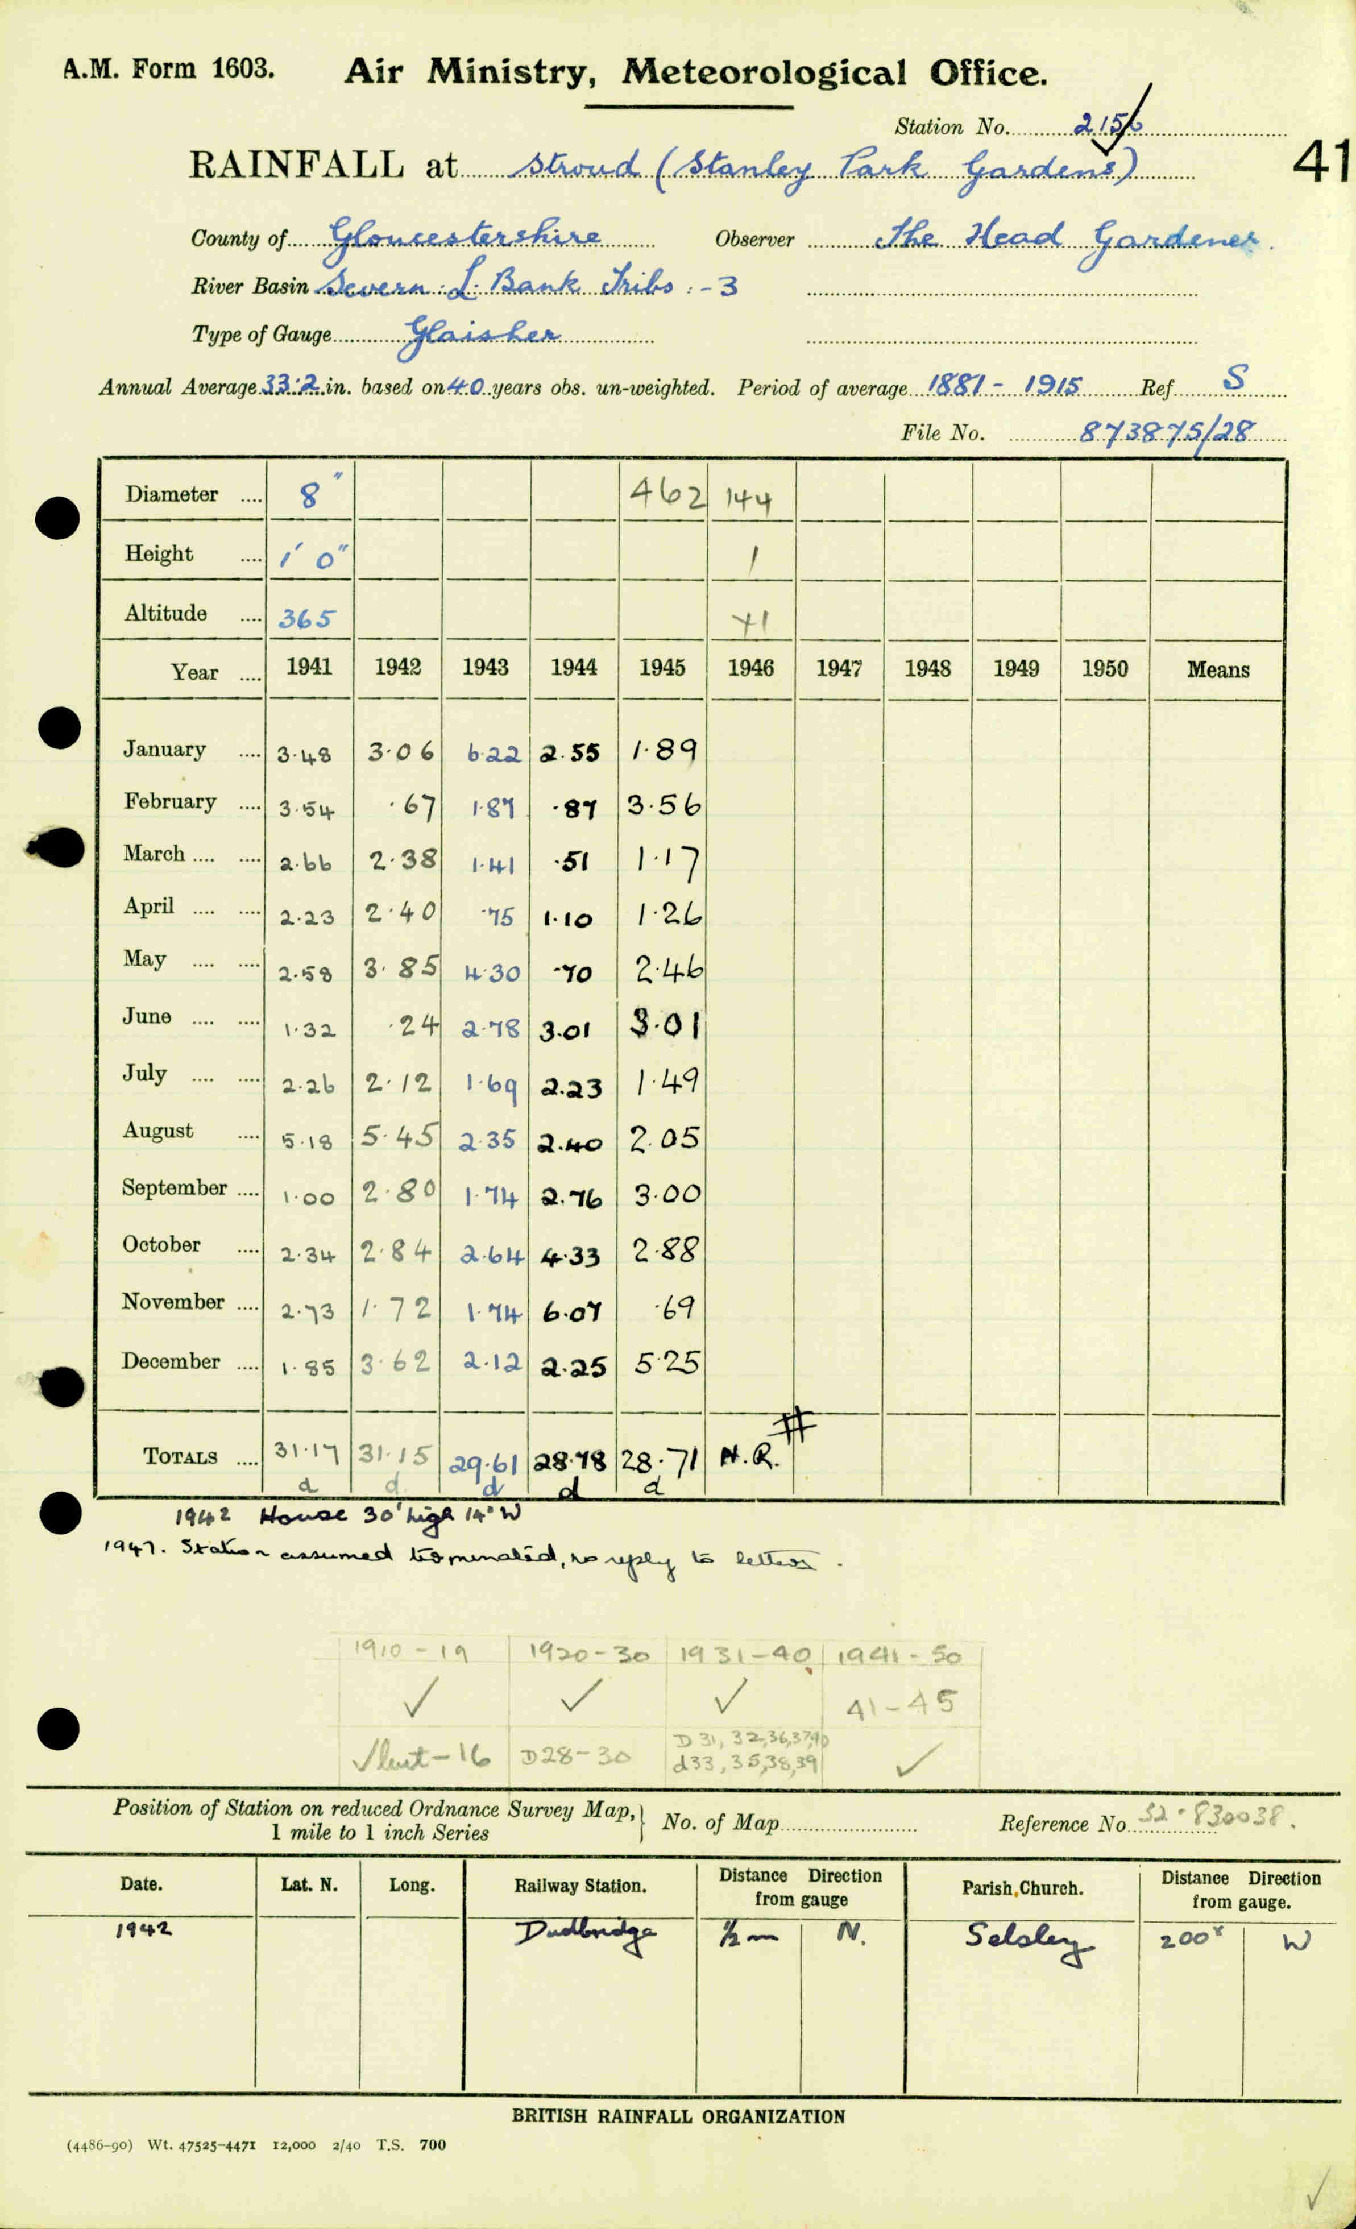 A.M. Form 1603. Air Ministry, Meteorological Office.
Station No. 2156
41
RAINFALL at Stroud (Stanley Park Gardens)
County of Gloucestershire Observer The Head Gardener.
River Basin Severn L. Bank Tribs :-3
Type of Gauge Glaisher
Annual Average 33.2 in. based on 40 years obs. un-weighted. Period of average 1881 - 1915 Ref. S
File No. 873875/28
Diameter .... 8" 462 144
Height .... 1' 0" 1
Altitude .... 365 41
Year .... 1941 1942 1943 1944 1945 1946 1947 1948 1949 1950 Means
January .... 3.48 3.06 6.22 2.55 1.89
February .... 3.54 .67 1.87 .87 3.56
March .... .... 2.66 2.38 1.41 .51 1.17
April .... .... 2.23 2.40 .75 1.10 1.26
May .... .... 2.58 3.85 4.30 .70 2.46
June .... .... 1.32 .24 2.78 3.01 3.01
July .... .... 2.26 2.12 1.69 2.23 1.49
August .... 5.18 5.45 2.35 2.40 2.05
September .... 1.00 2.80 1.74 2.76 3.00
October .... 2.34 2.84 2.64 4.33 2.88
November .... 2.73 1.72 1.74 6.07 .69
December .... 1.85 3.62 2.12 2.25 5.25
TOTALS .... 31.17 31.15 29.61 28.78 28.71 N.R. #
d d d d d
1942 House 30' high 14° W
1947. Station assumed terminated, no reply to letters.
1910 - 19 1920 - 30 1931 - 40 1941 - 50
✓ ✓ ✓ 41 - 45
✓ but - 16 D28 - 30 D 31, 32, 36, 37, 40 ✓
d33, 35, 38, 39
Position of Station on reduced Ordnance Survey Map, } No. of Map Reference No. 32.830038.
1 mile to 1 inch Series
Date. Lat. N. Long. Railway Station. Distance Direction from gauge Parish Church. Distance Direction from gauge.
1942 Dudbridge ½ m N. Selsley 200ˣ W
BRITISH RAINFALL ORGANIZATION
(4486-90) Wt. 47525-4471 12,000 2/40 T.S. 700